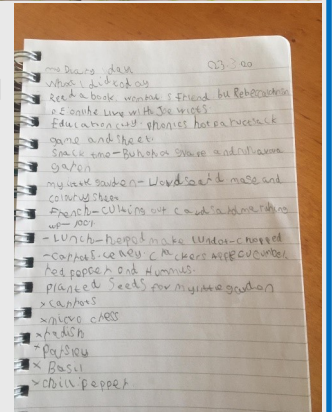 my Diary dash 23.3.20
what I did today
Read a book mental s friend by Rebecca
PE online Live with Joe wicks
Education city phonics hot air
game and sheet.
Snack time - Bunch of grapes and
garden
my little garden - Word search maze and
colouring sheet
French - cutting out cards and matching
up - 100%
- Lunch - helped make Lunch - chopped
- carrots - celery crackers apple cucumber
red pepper and Hummus.
planted seeds for my little garden
x carrots
x micro cress
x radish
x parsley
x Basil
x chilli pepper